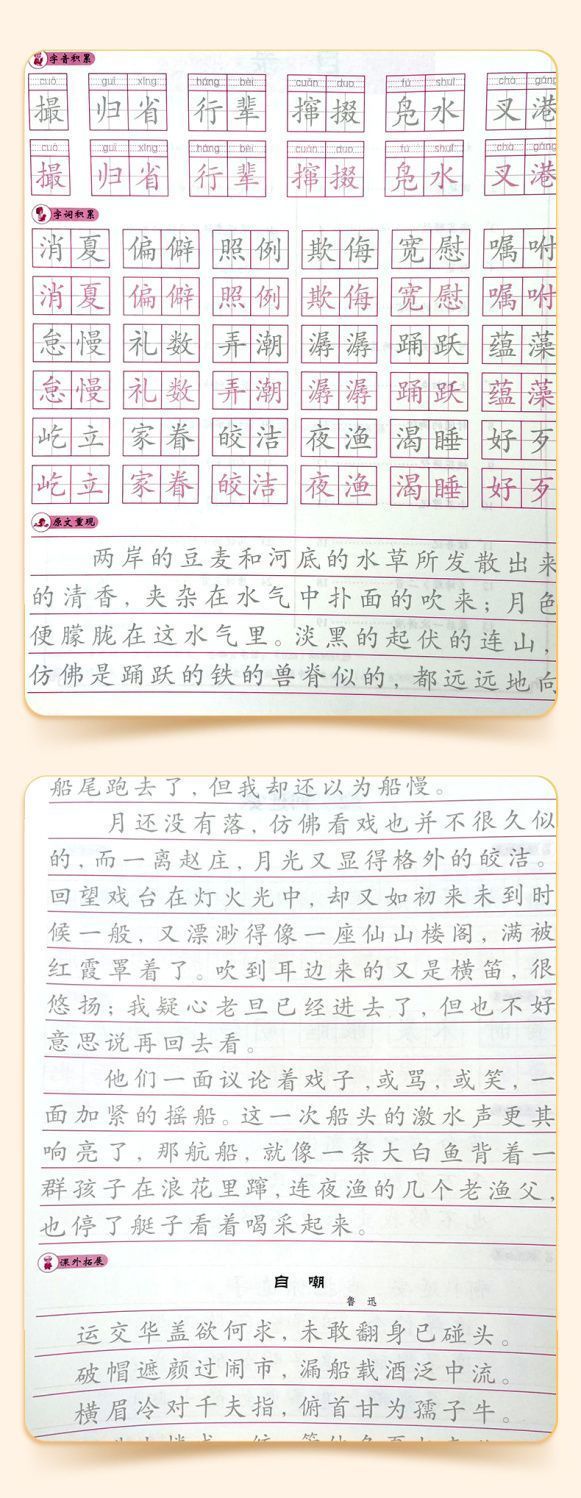 字音积累
cuō guī xǐng háng bèi cuān duo fú shuǐ chà gǎng
撮 归省 行辈 撺掇 凫水 叉港
cuō guī xǐng háng bèi cuān duo fú shuǐ chà gǎng
撮 归省 行辈 撺掇 凫水 叉港
字词积累
消夏 偏僻 照例 欺侮 宽慰 嘱咐
消夏 偏僻 照例 欺侮 宽慰 嘱咐
怠慢 礼数 弄潮 潺潺 踊跃 蕴藻
怠慢 礼数 弄潮 潺潺 踊跃 蕴藻
屹立 家眷 皎洁 夜渔 渴睡 好歹
屹立 家眷 皎洁 夜渔 渴睡 好歹
原文重现
两岸的豆麦和河底的水草所发散出来
的清香，夹杂在水气中扑面的吹来；月色
便朦胧在这水气里。淡黑的起伏的连山，
仿佛是踊跃的铁的兽脊似的，都远远地向
船尾跑去了，但我却还以为船慢。
月还没有落，仿佛看戏也并不很久似
的，而一离赵庄，月光又显得格外的皎洁。
回望戏台在灯火光中，却又如初来未到时
候一般，又漂渺得像一座仙山楼阁，满被
红霞罩着了。吹到耳边来的又是横笛，很
悠扬；我疑心老旦已经进去了，但也不好
意思说再回去看。
他们一面议论着戏子，或骂，或笑，一
面加紧的摇船。这一次船头的激水声更其
响亮了，那航船，就像一条大白鱼背着一
群孩子在浪花里蹿，连夜渔的几个老渔父，
也停了艇子看着喝采起来。
课外拓展
自嘲
鲁迅
运交华盖欲何求，未敢翻身已碰头。
破帽遮颜过闹市，漏船载酒泛中流。
横眉冷对千夫指，俯首甘为孺子牛。